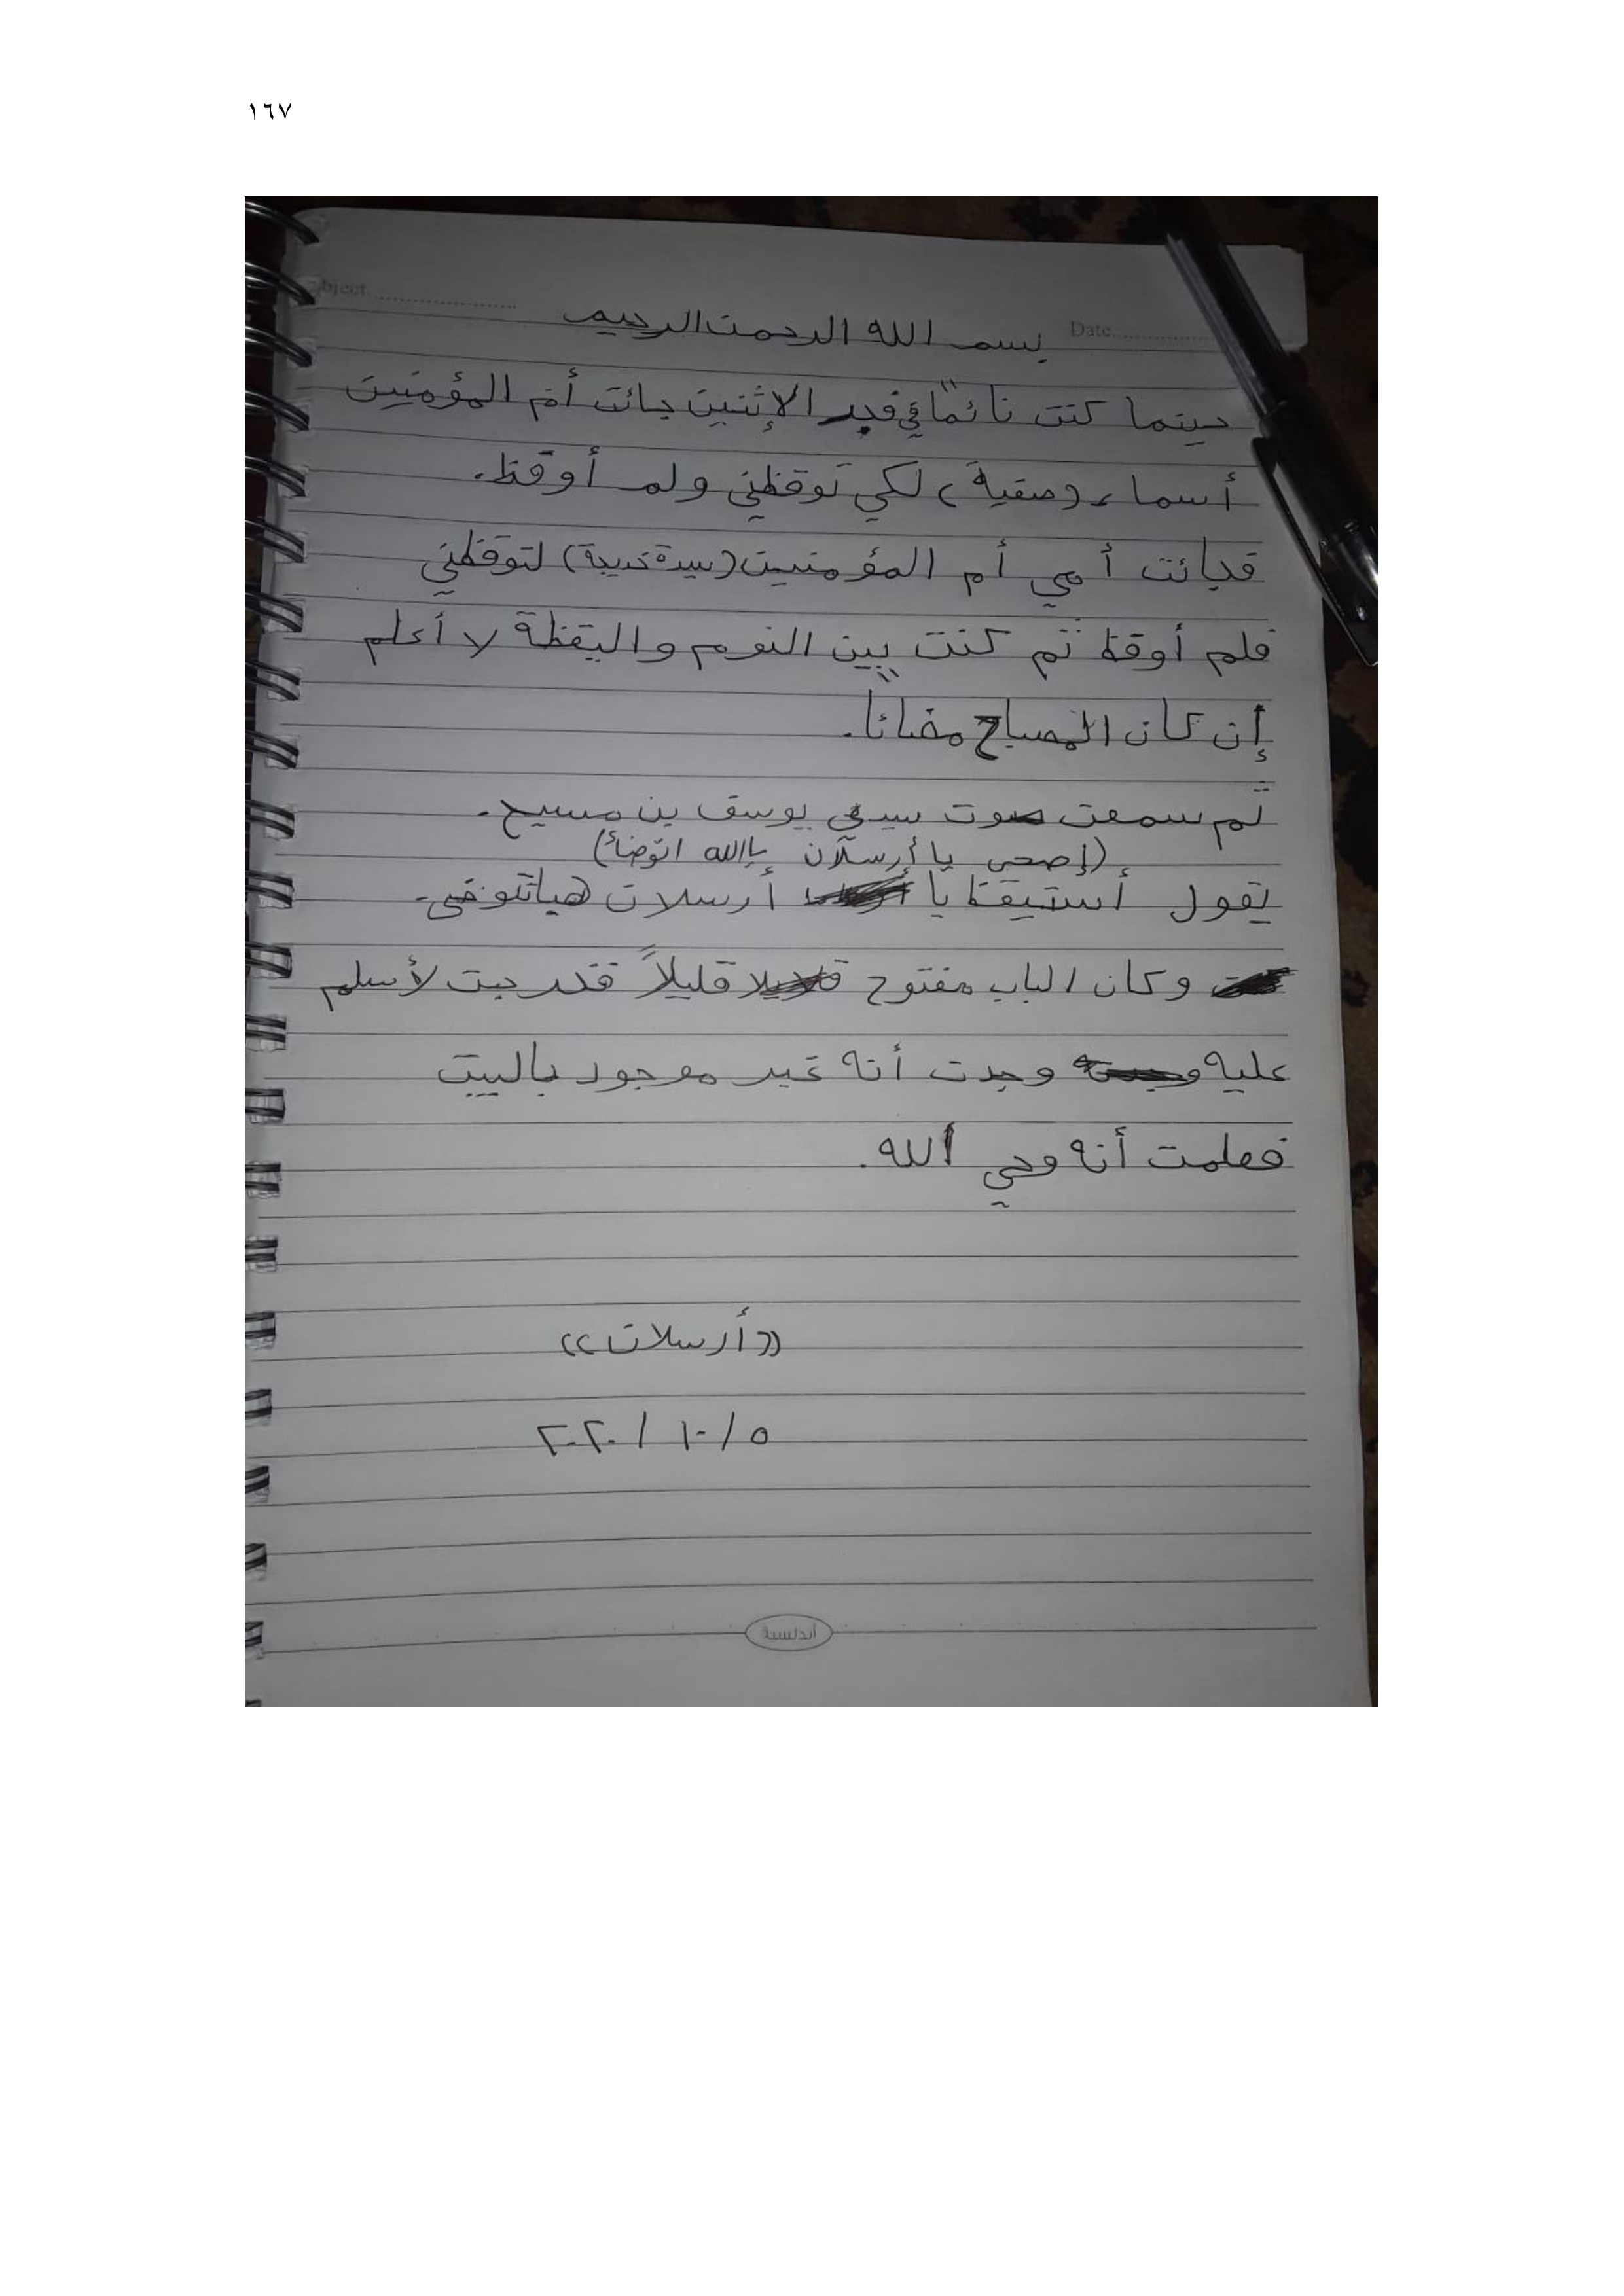 ١٦٧
bject
Date
بسم الله الرحمن الرحيم
حينما كنت نائماً في فجر الإثنين جائت أم المؤمنين
أسماء (صفية) لكي توقظني ولم أوقظ.
فجائت أمي أم المؤمنين (سيدة خديجة) لتوقظني
فلم أوقظ ثم كنت بين النوم واليقظة لا أعلم
إن كان المصباح مضائاً.
ثم سمعت صوت سيدي يوسف بن مسيح.
(إصحى يا أرسلان يالله اتوضأ)
يقول أستيقظ يا أرسلان هيا تتوضى.
وكان الباب مفتوح قليلاً فخرجت لأسلم
عليه وجدت أنه غير موجود بالبيت
فعلمت أنه وحي الله.
((أرسلان))
٥ / ١٠ / ٢٠٢٠
أندلسية